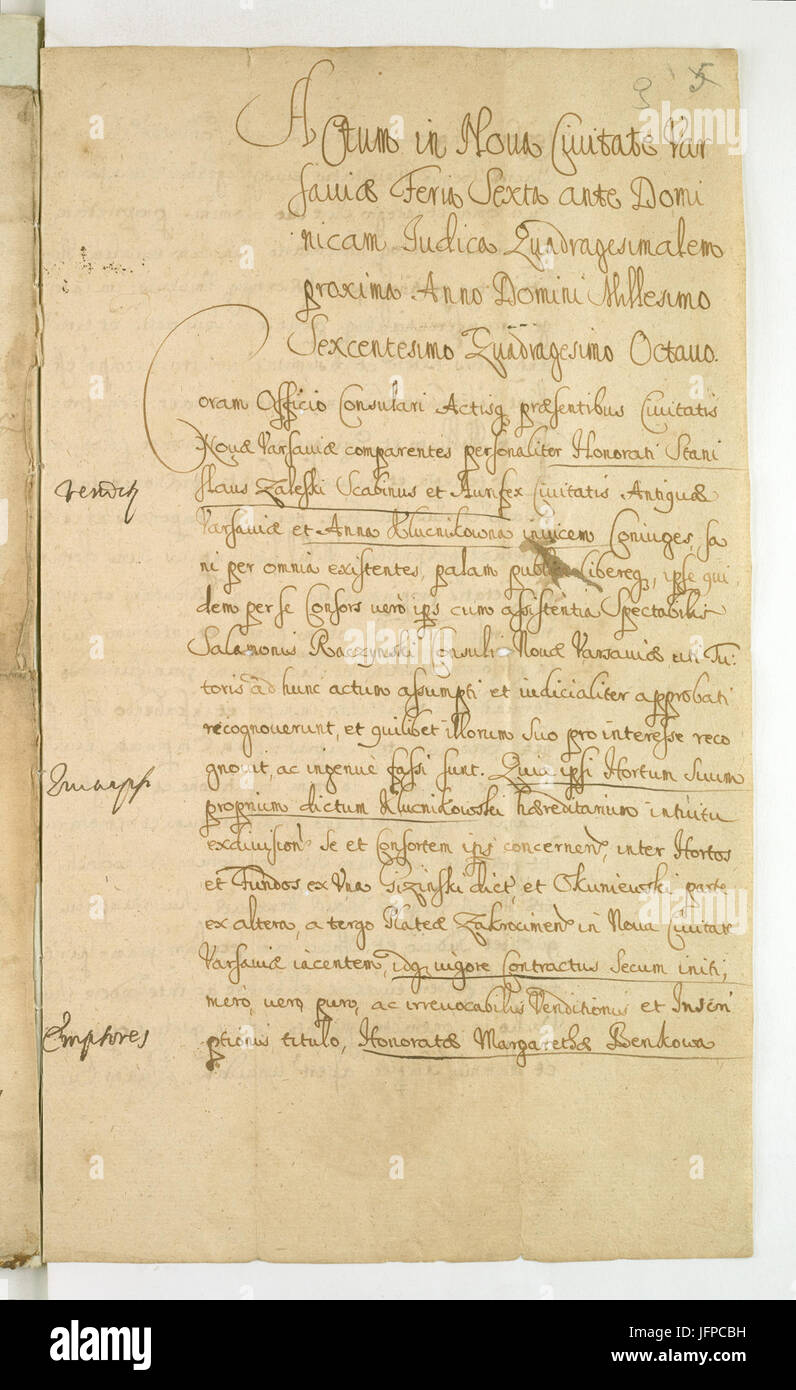 3 5
Actum in Noua Ciuitate Var
sauiæ Feria Sexta ante Domi
nicam Iudica Quadragesimalem
proxima Anno Domini Millesimo
Sexcentesimo Quadragesimo Octauo.
Coram Officio Consulari Actisq præsentibus Ciuitatis
Nouæ Varsauiæ comparentes personaliter Honorati Stani
slaus Zaleski Scabinus et Aurifex Ciuitatis Antiquæ
Varsauiæ et Anna Klucnikowna inuicem Coniuges, sa
ni per omnia existentes, palam libereq, ipse qui
dem per se Consors uerò ips cum assistentia Spectabilis
Salamonis Raczynski Consulis Nouæ Varsauiæ uti Tu:
toris ad hunc actum assumpti et iudicialiter approbati
recognouerunt, et quilibet illorum suo pro interesse reco
gnouit, ac ingenuè fassi sunt. Quia ipsi Hortum Suum
proprium dictum Klucnikowski hæreditarium intuitu
exdiuision se et Consortem ips concernen, inter Hortos
et Fundos ex Vna Gizinski dict, et Okuniewski parte
ex altera, a tergo Plateæ Zakrocimen in Noua Ciuitate
Varsauiæ iacentem, idq uigore Contractus Secum initi,
merò, uero, puro, ac irreuocabilis Venditionis et Inscri
ptionis titulo, Honoratæ Margarethæ Benkowa
Emptores
a alamy
alamy
Image ID: JFPCBH
www.alamy.com